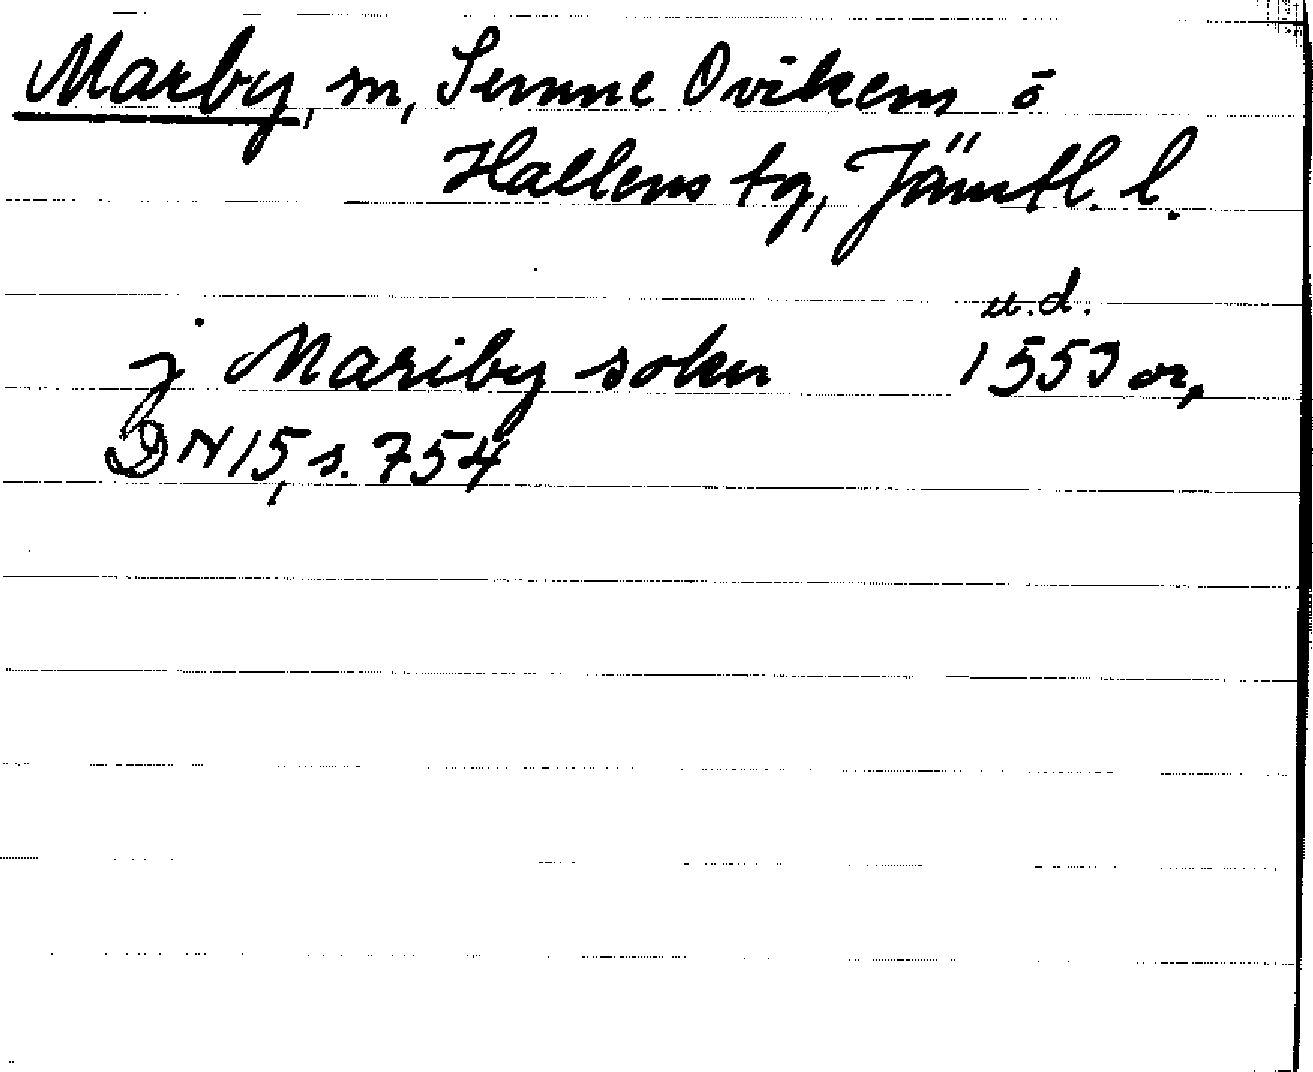 Marby, sn, Sunne Oviken o
Hallens tg, Jämtl. l.
u.d.
j Mariby sokn 1553 or,
DN 15, s. 754